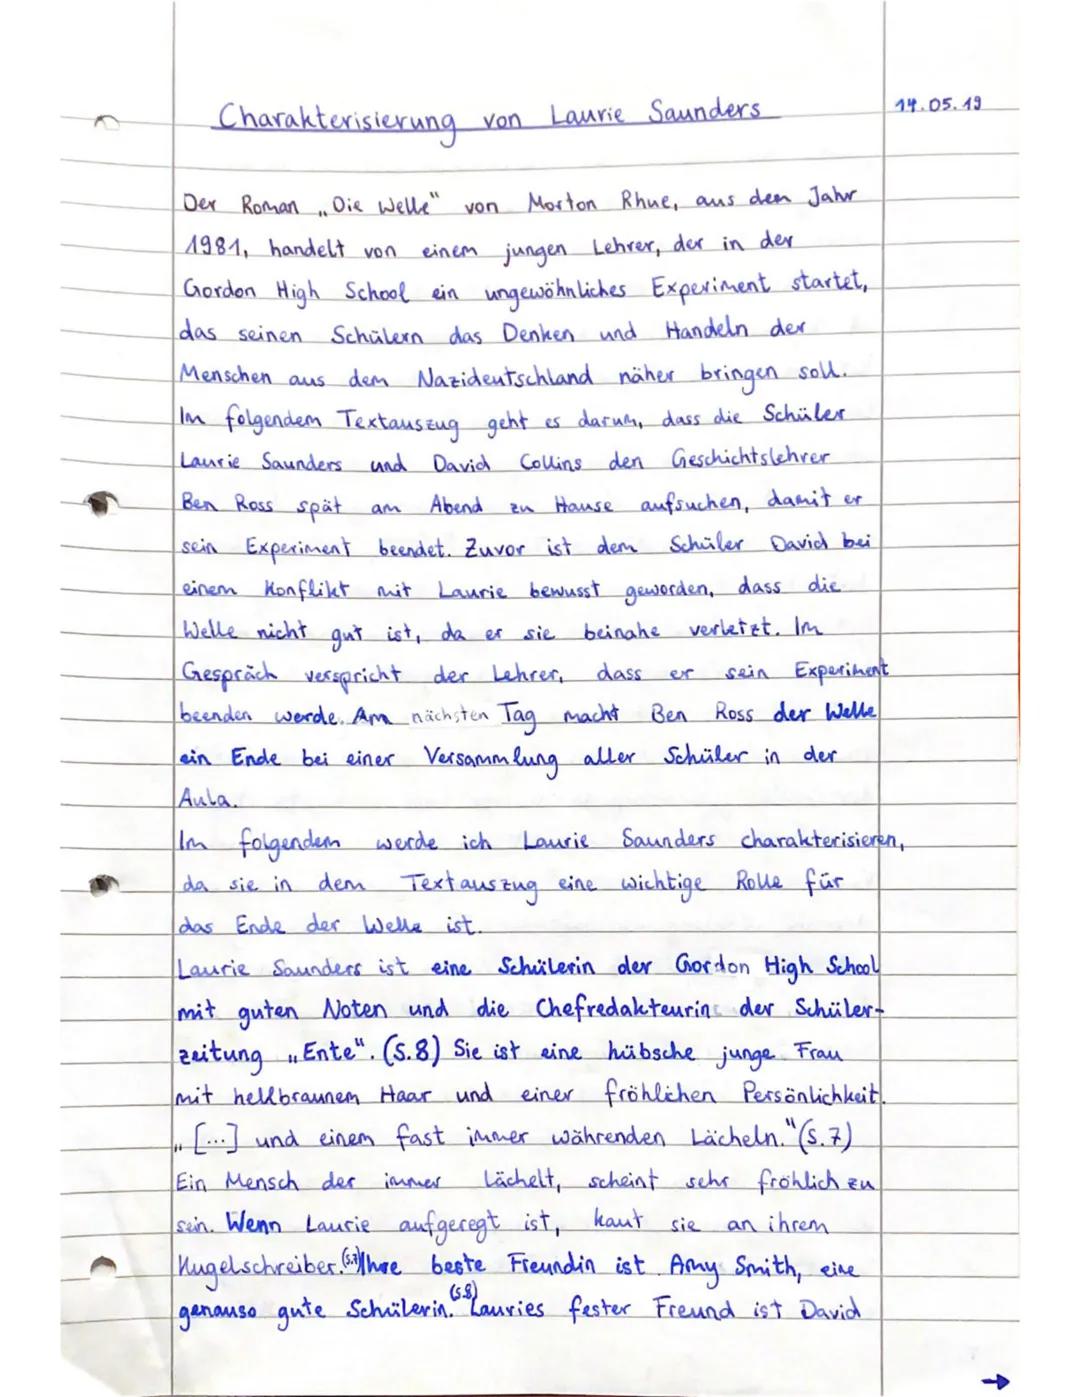 Charakterisierung von Laurie Saunders
14.05.19
Der Roman „Die Welle" von Morton Rhue, aus dem Jahr
1981, handelt von einem jungen Lehrer, der in der
Gordon High School ein ungewöhnliches Experiment startet,
das seinen Schülern das Denken und Handeln der
Menschen aus dem Nazideutschland näher bringen soll.
Im folgendem Textauszug geht es darum, dass die Schüler
Laurie Saunders und David Collins den Geschichtslehrer
Ben Ross spät am Abend zu Hause aufsuchen, damit er
sein Experiment beendet. Zuvor ist dem Schüler David bei
einem Konflikt mit Laurie bewusst geworden, dass die
Welle nicht gut ist, da er sie beinahe verletzt. Im
Gespräch verspricht der Lehrer, dass er sein Experiment
beenden werde. Am nächsten Tag macht Ben Ross der Welle
ein Ende bei einer Versammlung aller Schüler in der
Aula.
Im folgendem werde ich Laurie Saunders charakterisieren,
da sie in dem Textauszug eine wichtige Rolle für
das Ende der Welle ist.
Laurie Saunders ist eine Schülerin der Gordon High School
mit guten Noten und die Chefredakteurin der Schüler-
zeitung „Ente". (S.8) Sie ist eine hübsche junge Frau
mit hellbraunem Haar und einer fröhlichen Persönlichkeit.
„[...] und einem fast immer währenden Lächeln."(S.7)
Ein Mensch der immer lächelt, scheint sehr fröhlich zu
sein. Wenn Laurie aufgeregt ist, kaut sie an ihrem
Kugelschreiber.(S.7) Ihre beste Freundin ist Amy Smith, eine
genauso gute Schülerin.(S.8) Lauries fester Freund ist David
→